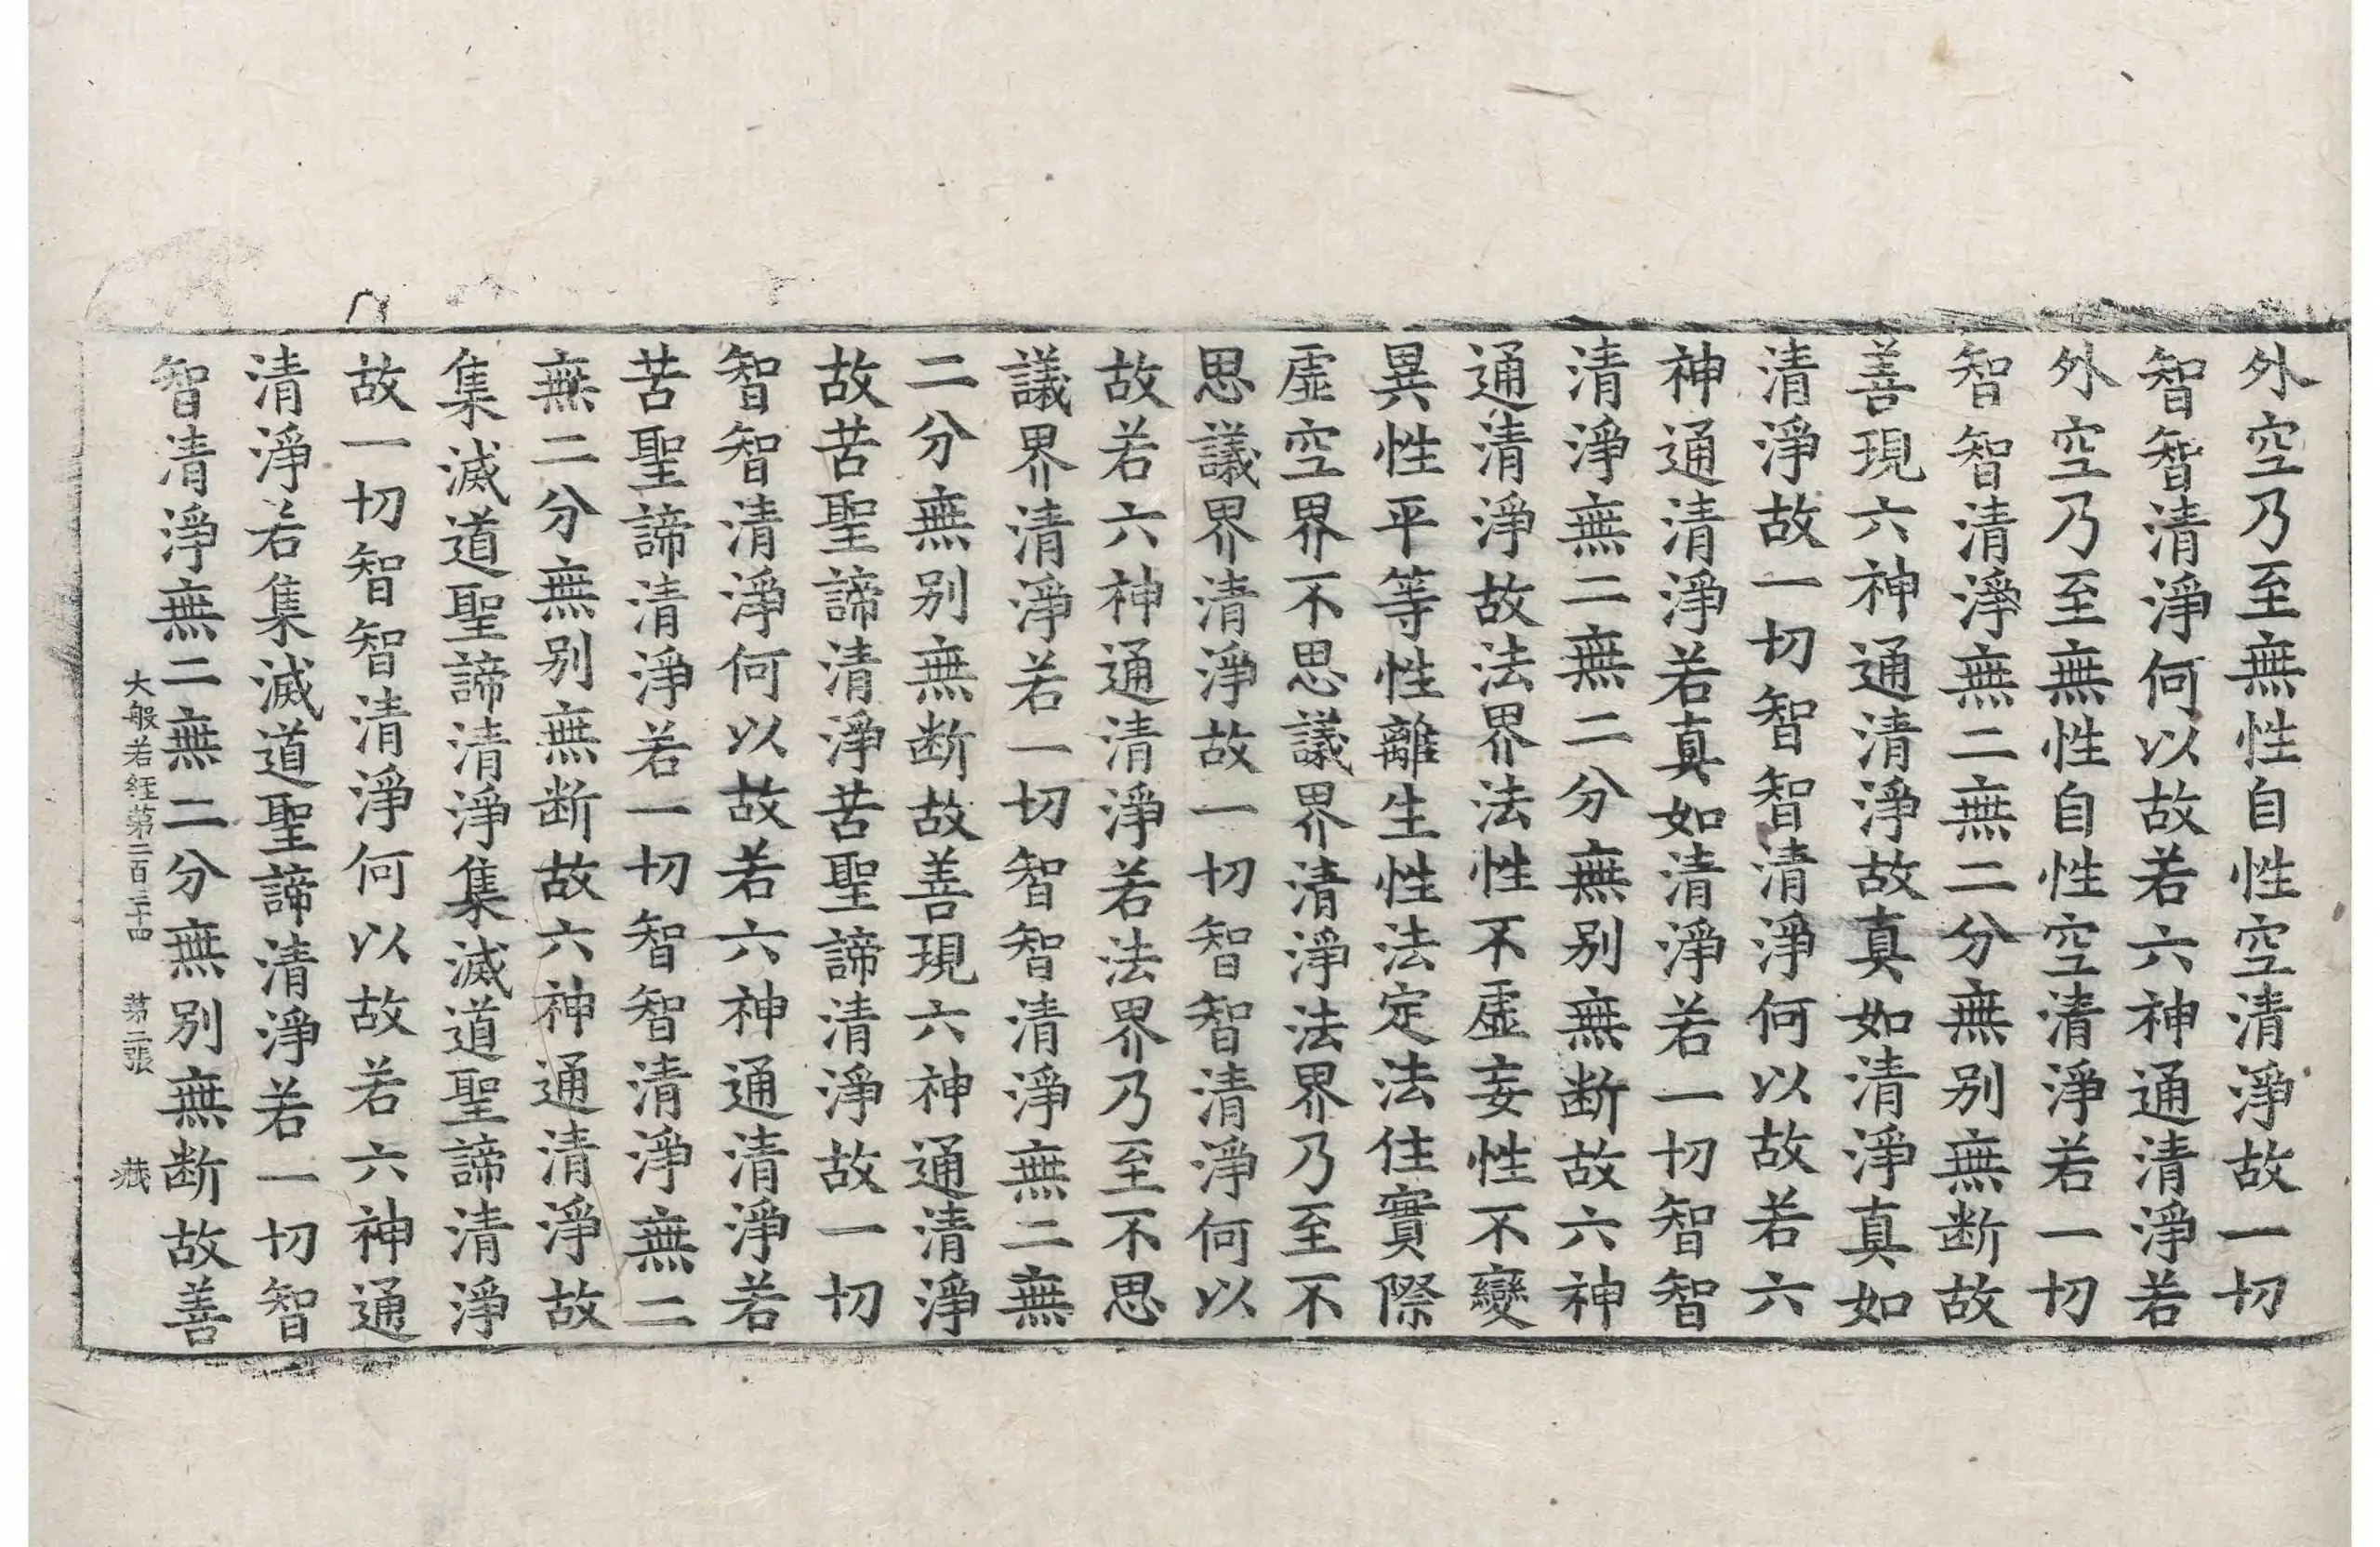 外空乃至無性自性空清淨故一切
智智清淨何以故若六神通清淨若
外空乃至無性自性空清淨若一切
智智清淨無二無二分無別無断故
善現六神通清淨故真如清淨真如
清淨故一切智智清淨何以故若六
神通清淨若真如清淨若一切智智
清淨無二無二分無別無断故六神
通清淨故法界法性不虛妄性不變
異性平等性離生性法定法住實際
虛空界不思議界清淨法界乃至不
思議界清淨故一切智智清淨何以
故若六神通清淨若法界乃至不思
議界清淨若一切智智清淨無二無
二分無別無断故善現六神通清淨
故苦聖諦清淨苦聖諦清淨故一切
智智清淨何以故若六神通清淨若
苦聖諦清淨若一切智智清淨無二
無二分無別無断故六神通清淨故
集滅道聖諦清淨集滅道聖諦清淨
故一切智智清淨何以故若六神通
清淨若集滅道聖諦清淨若一切智
智清淨無二無二分無別無断故善
大般若経第二百三十四 第二張 藏